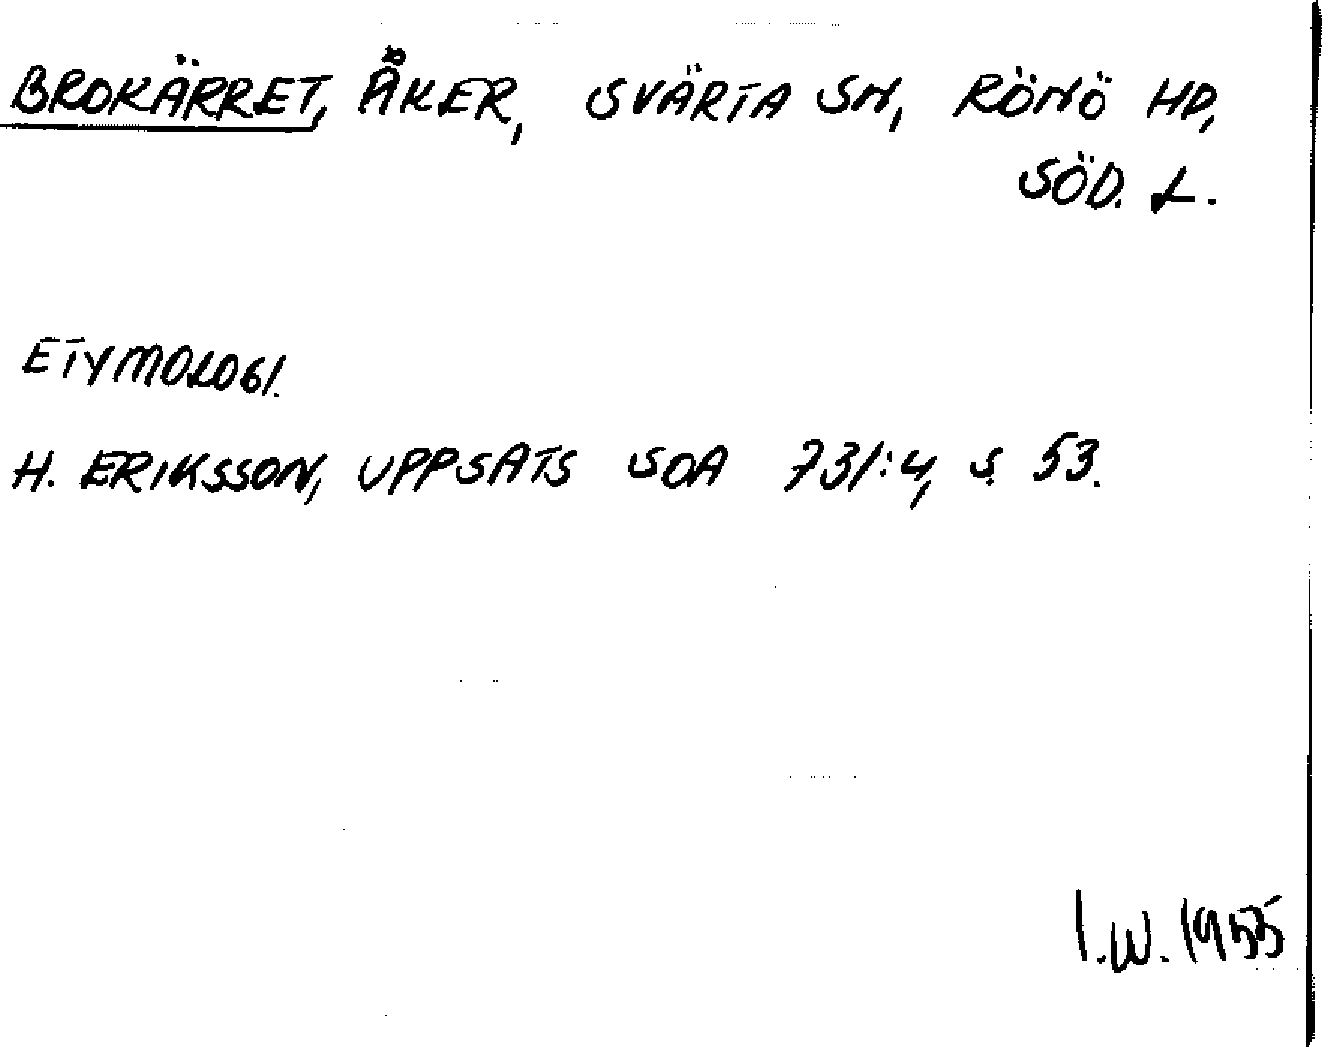 BROKÄRRET, ÅKER, SVÄRTA SN, RÖNÖ HD,
SÖD. L.
ETYMOLOGI.
H. ERIKSSON, UPPSATS SOA 731:4, S. 53.
I.W. 1955